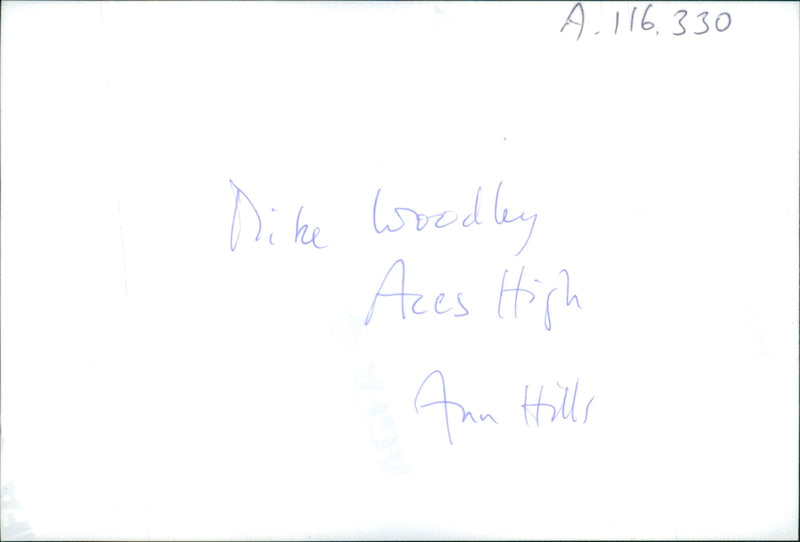 A.116.330
Mike Woodley
Aces High
Ann Hills